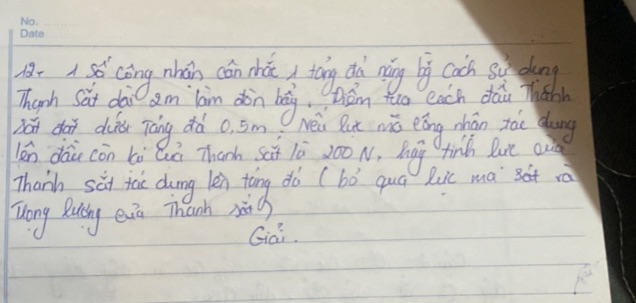 No.
Date
12. 1 số công nhân cần nhấc 1 tảng đá nặng bằng cách sử dụng
Thanh sắt dài 2m làm đòn bẩy. Điểm tựa cách đầu Thanh
sắt đặt dưới Tảng đá 0,5m. Nếu lực mà công nhân tác dụng
lên đầu còn lại của Thanh sắt là 200 N, hãy tính lực của
Thanh sắt tác dụng lên tảng đá ( bỏ qua lực ma sát và
Trọng lượng của Thanh sắt)
Giải.